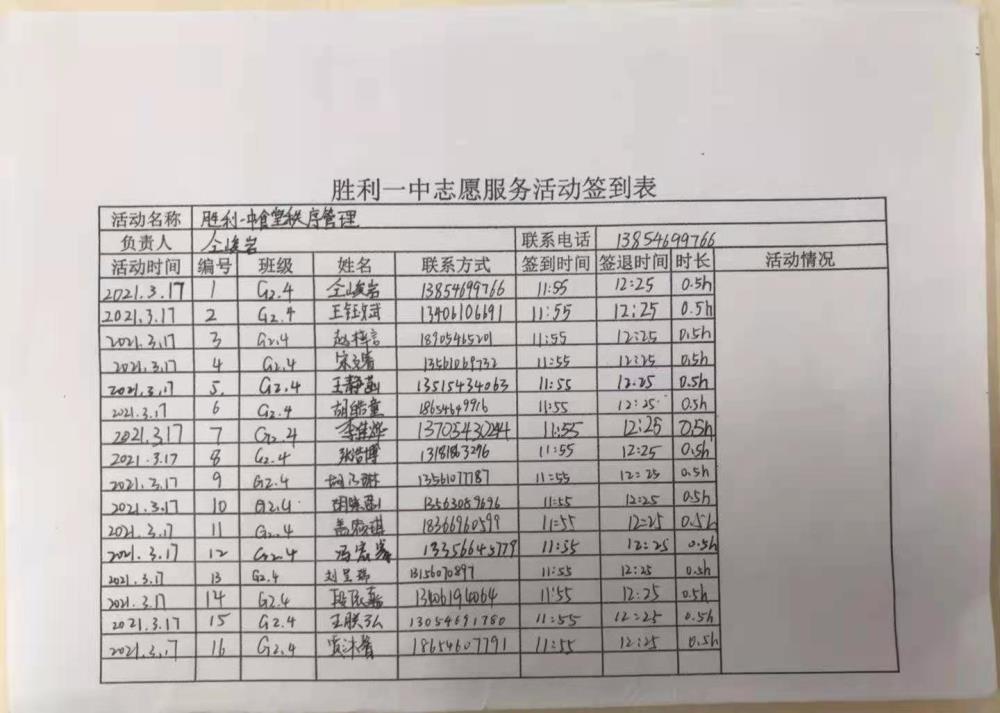 胜利一中志愿服务活动签到表
活动名称 胜利一中食堂秩序管理
负责人 仝峻岩 联系电话 13854699766
活动时间 编号 班级 姓名 联系方式 签到时间 签退时间 时长 活动情况
2021.3.17 1 G2.4 仝峻岩 13854699766 11:55 12:25 0.5h
2021.3.17 2 G2.4 13406106691 11:55 12:25 0.5h
2021.3.17 3 G2.4 18905465201 11:55 12:25 0.5h
2021.3.17 4 G2.4 13561069732 11:55 12:25 0.5h
2021.3.17 5. G2.4 王静茹 13515434063 11:55 12:25 0.5h
2021.3.17 6 G2.4 胡皓童 18654649916 11:55 12:25 0.5h
2021.3.17 7 G2.4 13705430244 11:55 12:25 0.5h
2021.3.17 8 G2.4 张浩博 1318183296 11:55 12:25 0.5h
2021.3.17 9 G2.4 13561077787 11:55 12:25 0.5h
2021.3.17 10 G2.4 13563089696 11:55 12:25 0.5h
2021.3.17 11 G2.4 18366960599 11:55 12:25 0.5h
2021.3.17 12 G2.4 13356645779 11:55 12:25 0.5h
2021.3.17 13 G2.4 刘昱瑞 13156070897 11:55 12:25 0.5h
2021.3.17 14 G2.4 13406194064 11:55 12:25 0.5h
2021.3.17 15 G2.4 13054691780 11:55 12:25 0.5h
2021.3.17 16 G2.4 贾沐馨 18654607791 11:55 12:25 0.5h